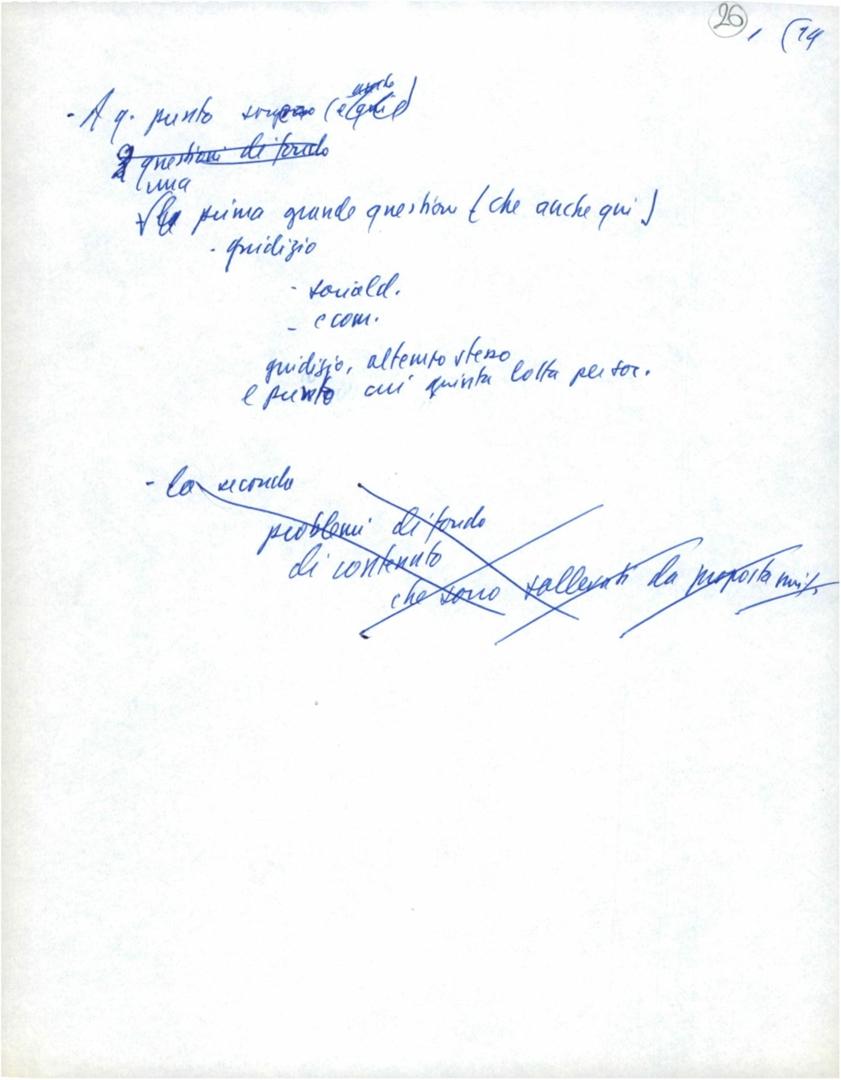 26, (14
- A q. punto sorgono (e anche qui)
2 questioni di fondo
una
la prima grande question (che anche qui)
- giudizio
- sociald.
- e com.
giudizio, al tempo stesso
e punto cui giunta lotta per soc.
- la seconda
problemi di fondo
di contenuto
che sono sollevati da proposta